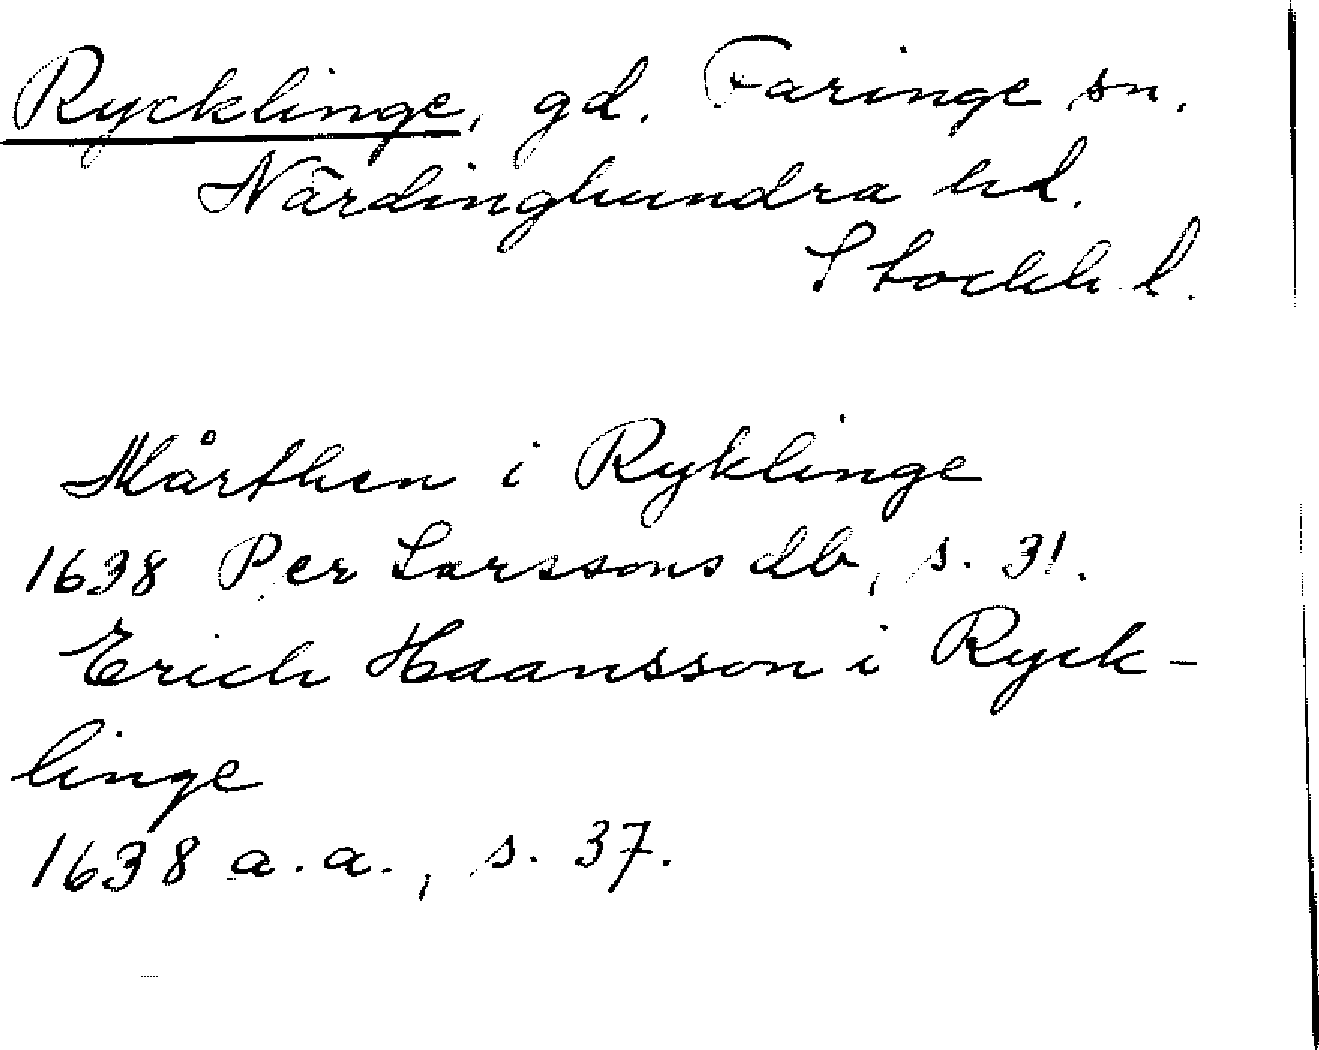 Rycklinge, gd. Faringe sn.
Närdinghundra hd.
Stockh. l.
Mårthen i Ryklinge
1638 Per Larssons db, s. 31.
Erich Haansson i Ryck-
linge
1638 a.a., s. 37.